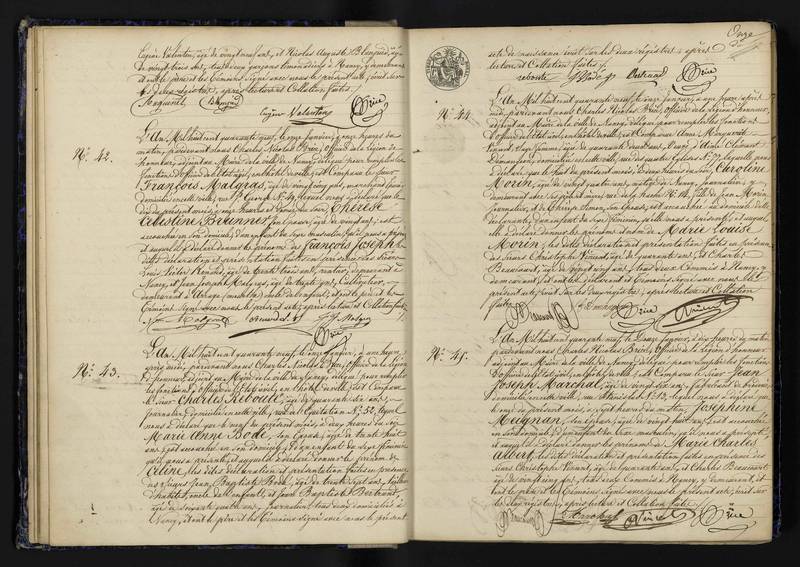 Eugène Valentin, âgé de vingt neuf ans, et Nicolas Auguste
de vingt trois ans, tous deux garçons limonadiers à Nancy, y demeurant
et ont le père et les témoins signé avec nous le présent acte, inscrit sur
les deux registres, après lecture et Collation faites.
Eugène Valentin Brice
N.° 42.
L'An Mil huit cent quarante neuf, le onze Janvier, à onze heures du
matin, pardevant nous Charles Nicolas Brice, officier de la Légion de
honneur, adjoint au Maire de la ville de Nancy, délégué pour remplir les
fonctions d'officier de l'état civil, en l'hôtel de ville, est Comparu le sieur
François Malgras, âgé de vingt cinq ans, marchand
domicilié en cette ville, rue S.t George N.° 49, lequel nous a déclaré que le
dix du présent mois, à onze heures du
Célestine
accouchée en son domicile, d'un enfant du sexe masculin, qu'il nous a présenté
et auquel il a déclaré donner les prénoms de François Joseph, les
dites déclaration et présentation faites en présence des sieurs
Louis Victor Renard, âgé de trente trois ans, rentier, demeurant à
Nancy, et Jean Joseph Malgras, âgé de trente ans, Cultivateur,
demeurant à (meurthe) oncle de l'enfant, et ont le père et les
témoins signé avec nous le présent acte, après lecture et Collation faites.
Brice
N.° 43.
L'An Mil huit cent quarante neuf, le onze Janvier, à une heure
après midi, pardevant nous Charles Nicolas Brice, officier de la Légion
d'honneur, adjoint au Maire de la ville de Nancy, délégué pour remplir
les fonctions d'officier de l'état civil, en l'hôtel de ville, est Comparu
le sieur Charles Reboulé, âgé de quarante six ans,
journalier, domicilié en cette ville, rue de l'Equitation N.° 32, lequel
nous a déclaré que le neuf du présent mois, à dix heures du soir
Marie Anne Bode, son épouse, âgée de trente huit
ans, est accouchée en son domicile, d'un enfant du sexe féminin
qu'il nous a présenté, et auquel il a déclaré donner le prénom de
Céline, les dites déclaration et présentation faites en présence
des sieurs Jean Baptiste Bode, âgé de trente sept ans,
oncle de l'enfant, et Jean Baptiste Bertrand,
âgé de cinquante ans, journalier, tous deux domiciliés à
Nancy, et ont le père et les témoins signé avec nous le présent
Onze
acte de naissance inscrit sur les deux registres, après
lecture et Collation faites.
reboulé Bode Bertrand Brice
N.° 44.
L'An Mil huit cent quarante neuf, le onze Janvier, à une heure après
midi, pardevant nous Charles Nicolas Brice, officier de la Légion d'honneur,
adjoint au Maire de la ville de Nancy, délégué pour remplir les fonctions
d'officier de l'état civil, en l'hôtel de ville, est Comparue Anne Marguerite
sage femme, âgée de quarante
domiciliée en cette ville, rue des quatre Eglises N.° 77, laquelle nous
a déclaré que le huit du présent mois, à deux heures du soir, Caroline
Morin, âgée de vingt quatre ans, native de Nancy, journalière, y
demeurant avec ses père et mère, fille de Jean Morin
journalier, et de est accouchée au domicile de la
déclarante, d'un enfant du sexe féminin, qu'elle nous a présenté, et auquel
elle a déclaré donner les prénoms et nom de Marie Louise
Morin, les dites déclaration et présentation faites en présence
des sieurs Christophe Vincent, âgé de quarante ans, et Charles
Beaucourt, âgé de vingt cinq ans, tous deux Commis à Nancy, y
demeurant, et ont la déclarante et les témoins signé avec nous le
présent acte, inscrit sur les deux registres, après lecture et Collation
faites.
Brice Vincent
N.° 45.
L'An Mil huit cent quarante neuf, le Douze Janvier, à dix heures du matin,
pardevant nous Charles Nicolas Brice, officier de la Légion d'honneur
adjoint au Maire de la ville de Nancy, délégué pour remplir les fonctions
d'officier de l'état civil, en l'hôtel de ville, est Comparu le sieur Jean
Joseph Marchal, âgé de vingt six ans, fabricant de
domicilié en cette ville, rue N.° 13, lequel nous a déclaré que
le onze du présent mois, à sept heures du matin, Joséphine
Meugnan, son épouse, âgée de vingt huit ans, est accouchée
en son domicile, d'un enfant du sexe masculin, qu'il nous a présenté
et auquel il a déclaré donner les prénoms de Marie Charles
Albert, les dites déclaration et présentation faites en présence des
sieurs Christophe Vincent, âgé de quarante ans, et Charles Beaucourt
âgé de vingt cinq ans, tous deux Commis à Nancy, y demeurant, et
ont le père et les témoins signé avec nous le présent acte, inscrit sur
les deux registres, après lecture et Collation faites.
J Marchal Vincent Brice